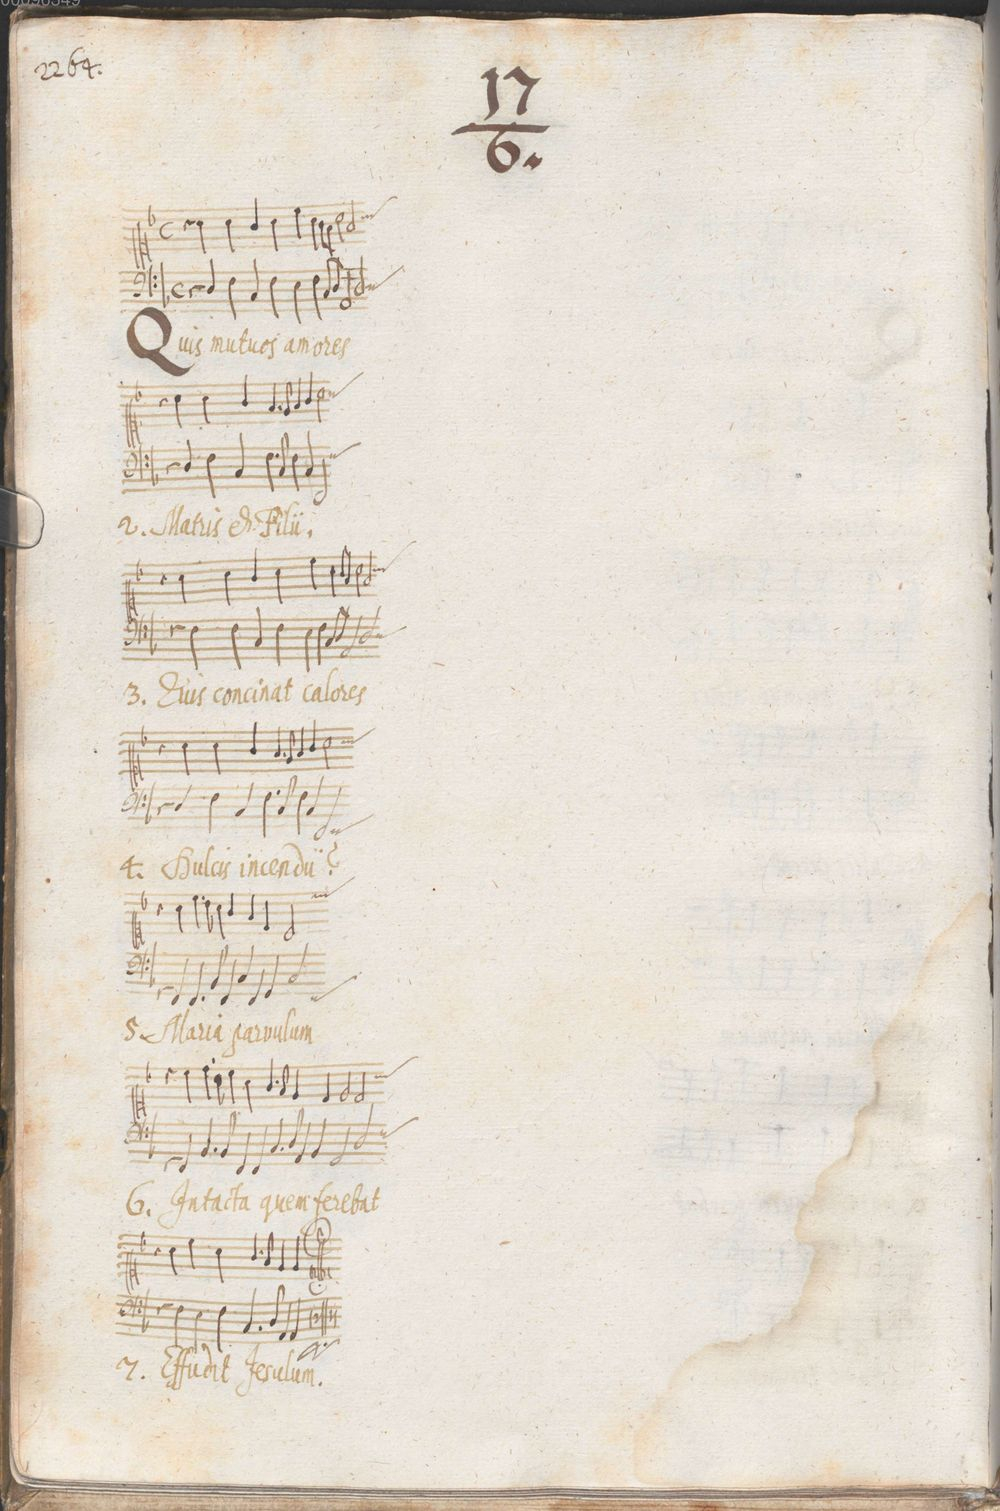 00098549
2264.
17
6.
Quis mutuos amores
2. Matris & Filii,
3. Quis concinat calores
4. Dulcis incendii?
5. Maria parvulum
6. Intacta quem ferebat
7. Effudit Jesulum.